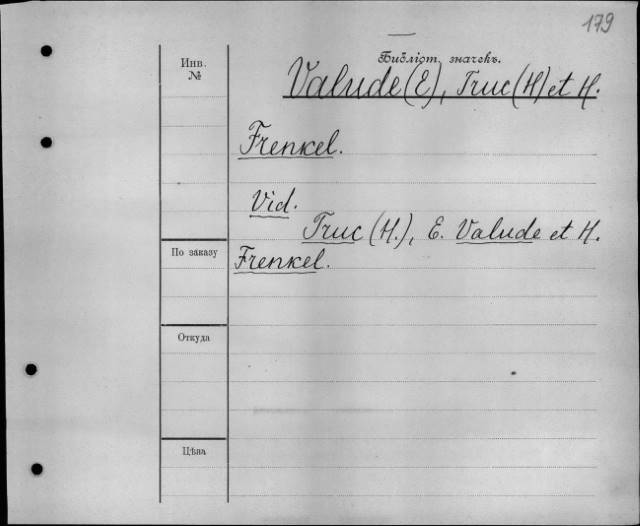 179
Библіот. значекъ.
Инв.
№
Valude (E), Truc (H) et H.
Frenkel.
Vid.
Truc (H.), E. Valude et H.
По заказу
Frenkel.
Откуда
Цѣна